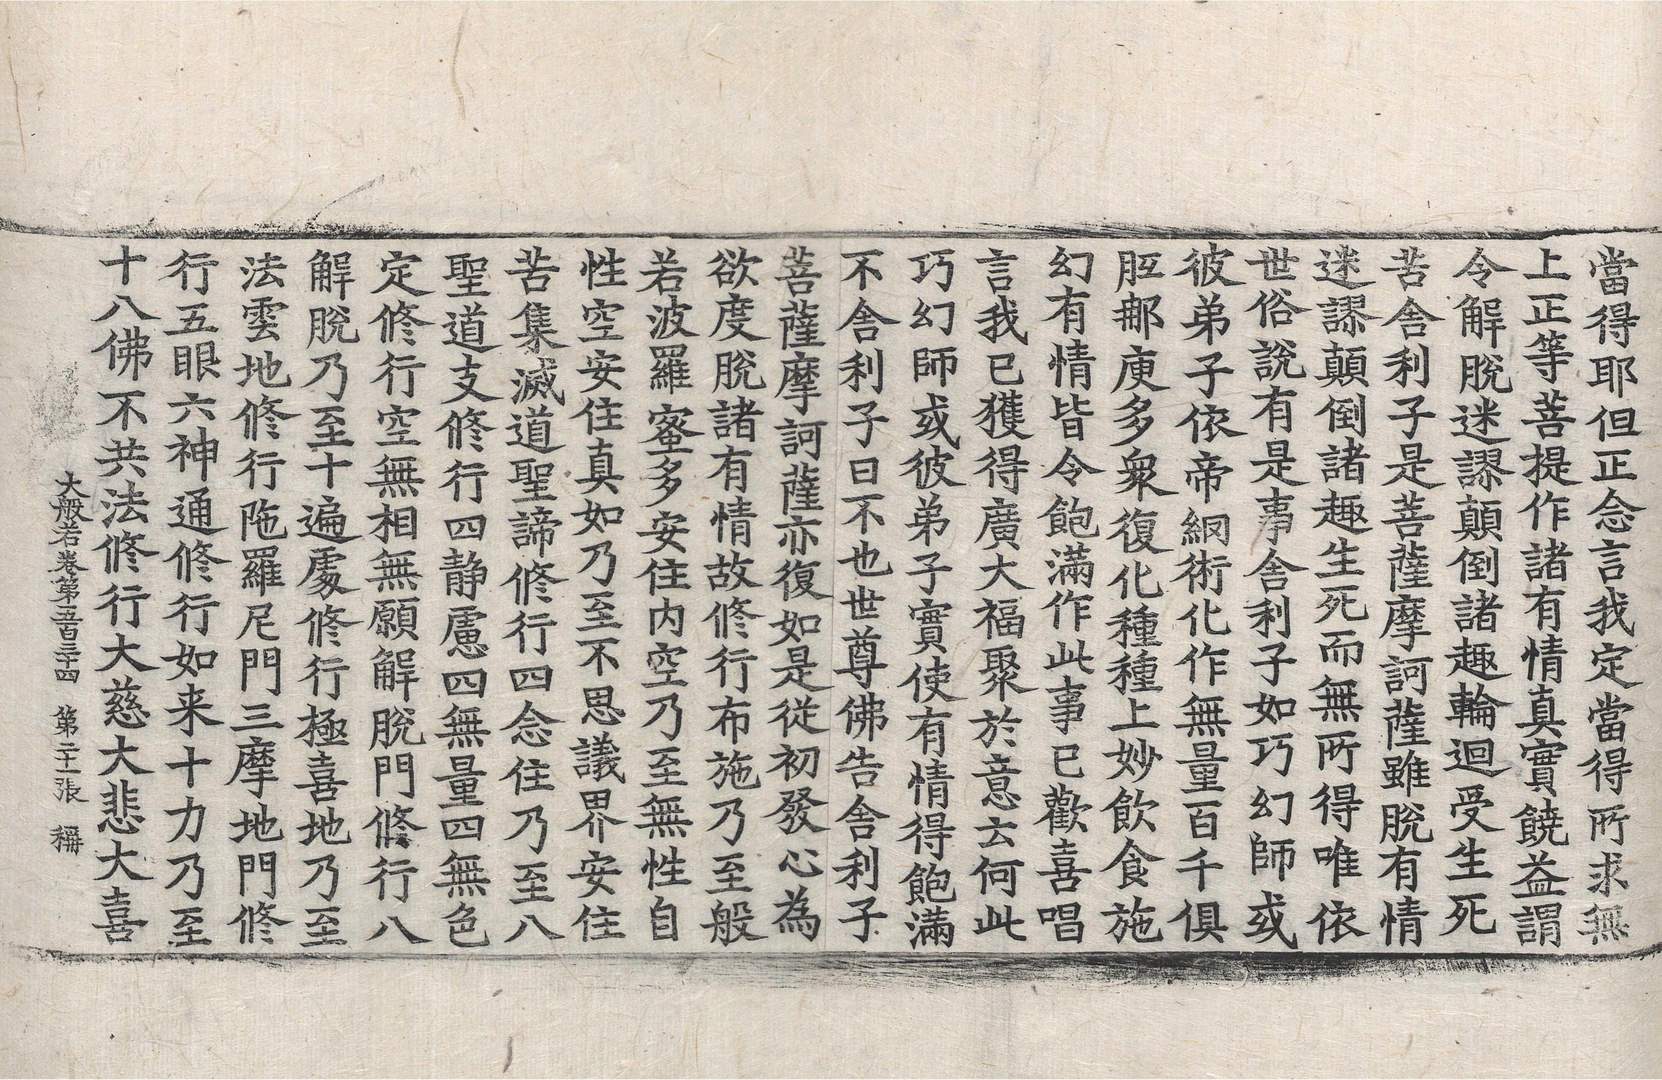 當得耶但正念言我定當得所求無
上正等菩提作諸有情真實饒益謂
令解脫迷謬顛倒諸趣輪迴受生死
苦舍利子是菩薩摩訶薩雖脫有情
迷謬顛倒諸趣生死而無所得唯依
世俗說有是事舍利子如巧幻師或
彼弟子依帝網術化作無量百千俱
胝那庾多衆復化種種上妙飲食施
幻有情皆令飽滿作此事已歡喜唱
言我已獲得廣大福聚於意云何此
巧幻師或彼弟子實使有情得飽滿
不舍利子曰不也世尊佛告舍利子
菩薩摩訶薩亦復如是從初發心為
欲度脫諸有情故修行布施乃至般
若波羅蜜多安住內空乃至無性自
性空安住真如乃至不思議界安住
苦集滅道聖諦修行四念住乃至八
聖道支修行四靜慮四無量四無色
定修行空無相無願解脫門修行八
解脫乃至十遍處修行極喜地乃至
法雲地修行陁羅尼門三摩地門修
行五眼六神通修行如来十力乃至
十八佛不共法修行大慈大悲大喜
大般若卷第五百三十四 第二十一張 稱